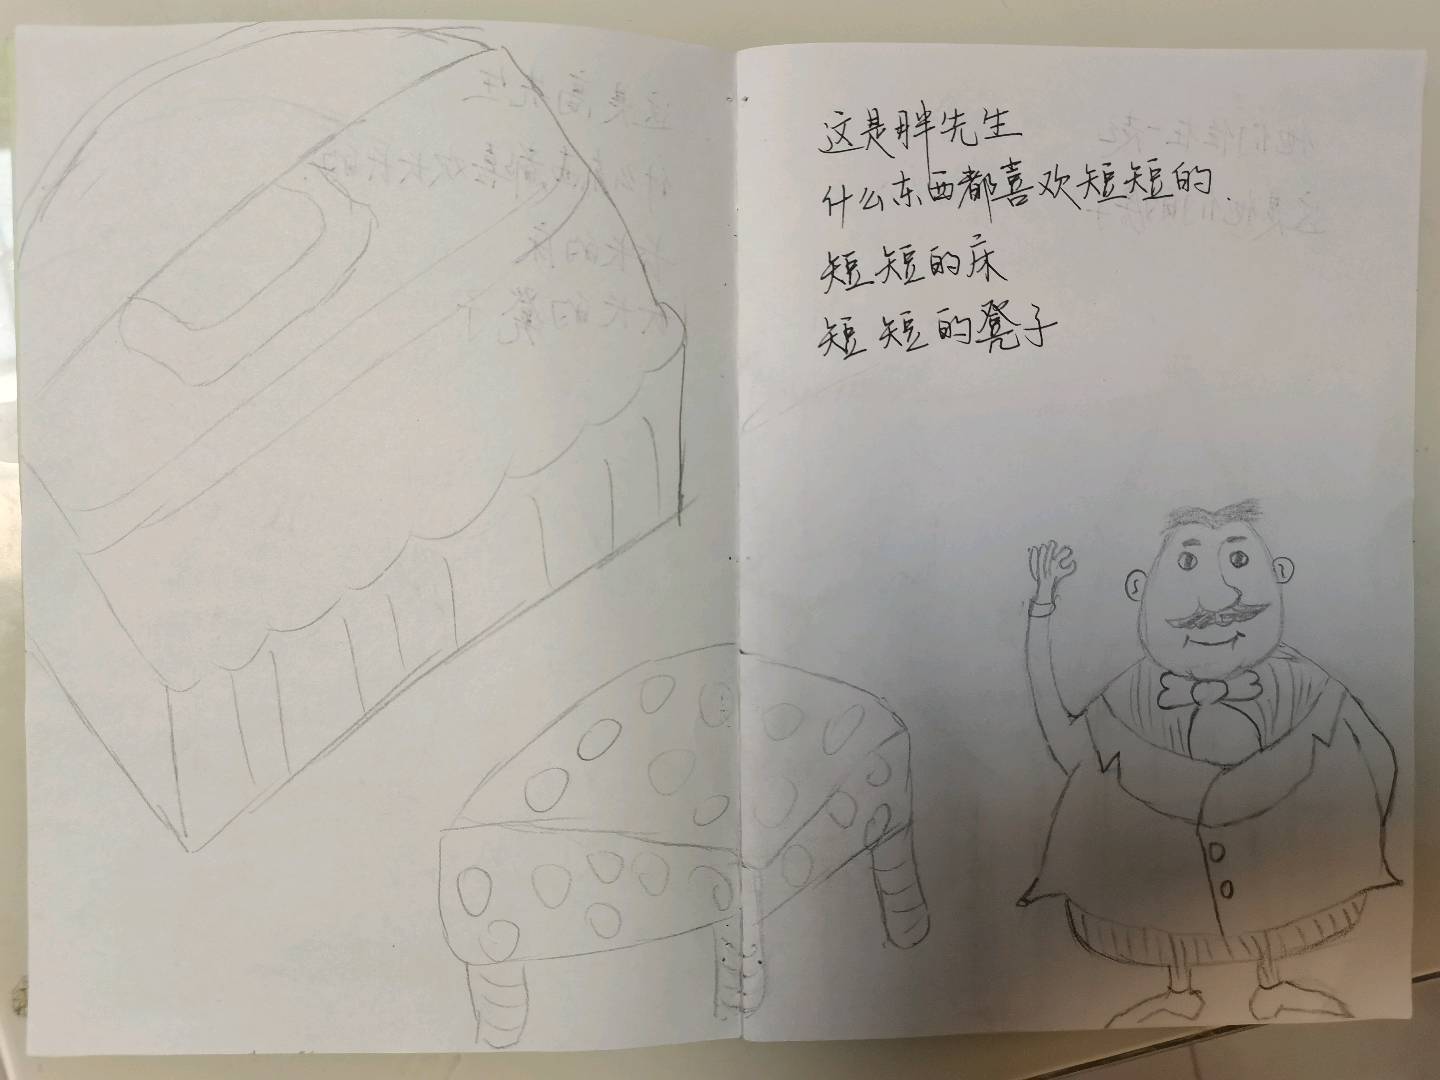 这是胖先生
什么东西都喜欢短短的.
短短的床
短短的凳子